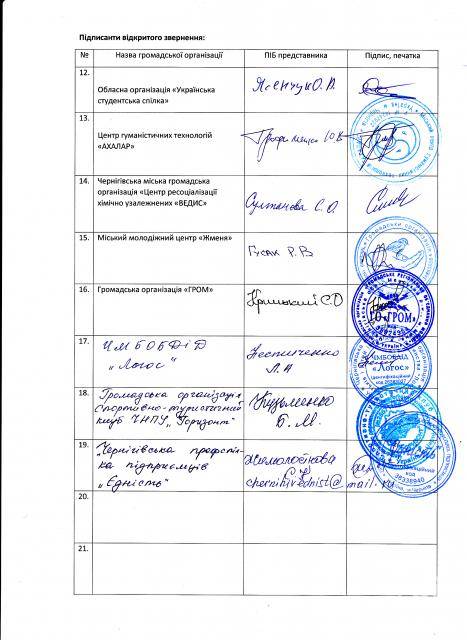 Підписанти відкритого звернення:
№ Назва громадської організації ПІБ представника Підпис, печатка
12.
Обласна організація «Українська
студентська спілка»
Ясенчук О.В.
13.
Центр гуманістичних технологій
«АХАЛАР»
Ю.В.
14. Чернігівська міська громадська
організація «Центр ресоціалізації
хімічно узалежнених «ВЕДИС»
Султанова С.О.
15. Міський молодіжний центр «Жменя»
Гусак Р.В
16. Громадська організація «ГРОМ»
С.О
ГО «ГРОМ»
17. ЧМБОБДіД
„Логос"
Неспиченко
Л.А
ЧМБОБДІД
«Логос»
Ідентифікаційний
код
18. Громадська організація
Спортивно-туристичний
клуб ЧНПУ „Горизонт"
Кузьменко
Б.М.
19. „Чернігівська профспіл-
ка підприємців
„Єдність"
chernihivednist@mail.ru
код
36338940
20.
21.